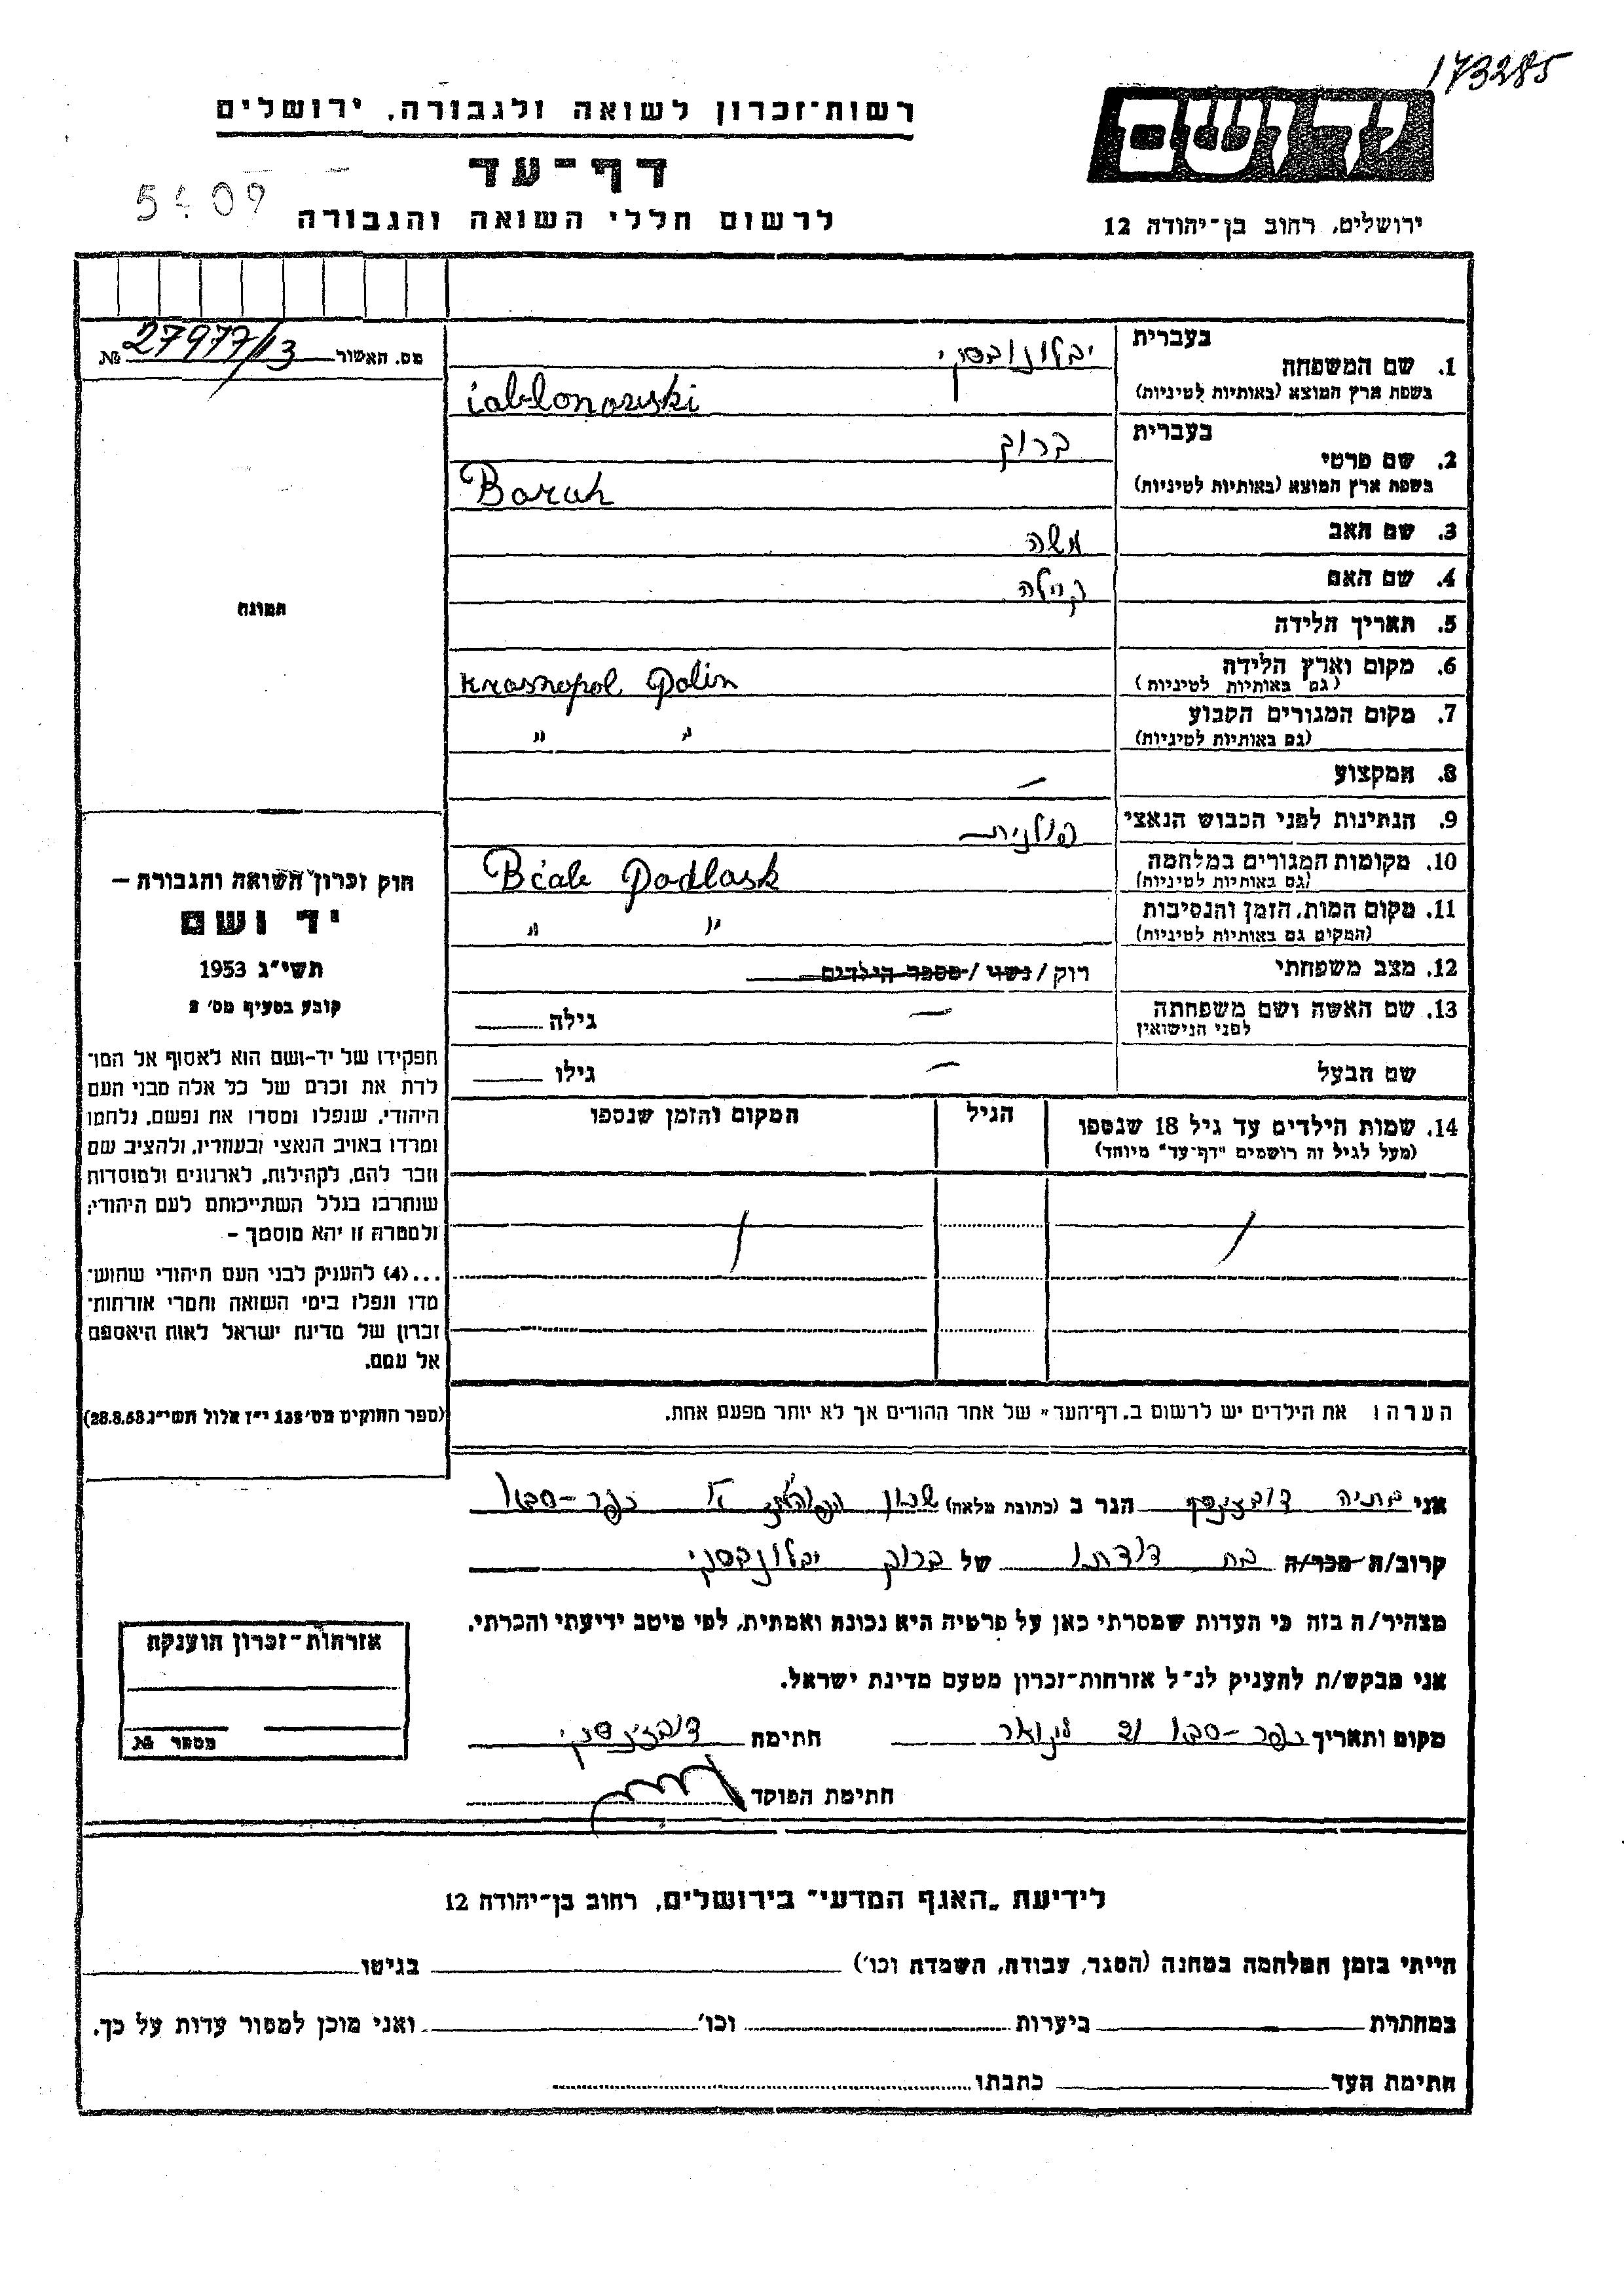 173285
רשות־זכרון לשואה ולגבורה, ירושלים
יד ושם
דף־עד
5409
לרשום חללי השואה והגבורה
ירושלים, רחוב בן־יהודה 12
מס. האשור 27977/13 №
תמונה
בעברית
1. שם המשפחה יבלונובסקי
בשפת ארץ המוצא (באותיות לטיניות) iablonowski
בעברית
2. שם פרטי ברוך
בשפת ארץ המוצא (באותיות לטיניות) Baruh
3. שם האב משה
4. שם האם
5. תאריך הלידה
6. מקום וארץ הלידה Krasnopol Polin
(גם באותיות לטיניות)
7. מקום המגורים הקבוע " "
(גם באותיות לטיניות)
8. המקצוע —
9. הנתינות לפני הכבוש הנאצי פולנית
10. מקומות המגורים במלחמה Biale Podlask
(גם באותיות לטיניות)
11. מקום המות, הזמן והנסיבות " "
(המקום גם באותיות לטיניות)
12. מצב משפחתי רוק / נשוי / מספר הילדים
13. שם האשה ושם משפחתה — גילה
לפני הנישואין
שם הבעל — גילו
14. שמות הילדים עד גיל 18 שנספו הגיל המקום והזמן שנספו
(מעל לגיל זה רושמים "דף־עד" מיוחד)
הערה: את הילדים יש לרשום ב„דף־העד" של אחד ההורים אך לא יותר מפעם אחת.
חוק זכרון השואה והגבורה —
יד ושם
תשי"ג 1953
קובע בסעיף מס' 2
תפקידו של יד־ושם הוא לאסוף אל המו־
לדת את זכרם של כל אלה מבני העם
היהודי, שנפלו ומסרו את נפשם, נלחמו
ומרדו באויב הנאצי ובעוזריו, ולהציב שם
וזכר להם, לקהילות, לארגונים ולמוסדות
שנחרבו בגלל השתייכותם לעם היהודי;
ולמטרה זו יהא מוסמך —
...(4) להעניק לבני העם היהודי שהוש־
מדו ונפלו בימי השואה והמרי אזרחות־
זכרון של מדינת ישראל לאות היאספם
אל עמם.
(ספר החוקים מס' 132 י"ז אלול תשי"ג 28.8.53)
אני בתיה הגר ב (כתובת מלאה) שכון כפר־סבא
קרוב/ה מכר/ה בת דודתו של ברוך יבלונבסקי
מצהיר/ה בזה כי העדות שמסרתי כאן על פרטיה היא נכונה ואמתית, לפי מיטב ידיעתי והכרתי.
אני מבקש/ת להעניק לנ"ל אזרחות־זכרון מטעם מדינת ישראל.
מקום ותאריך כפר־סבא חתימה
חתימת הפוקד
אזרחות־זכרון הוענקה
מספר №
לידיעת „האגף המדעי" בירושלים, רחוב בן־יהודה 12
הייתי בזמן המלחמה במחנה (הסגר, עבודה, השמדה וכו') בגיטו
במחתרת ביערות וכו' ואני מוכן למסור עדות על כך.
חתימת העד כתבתו